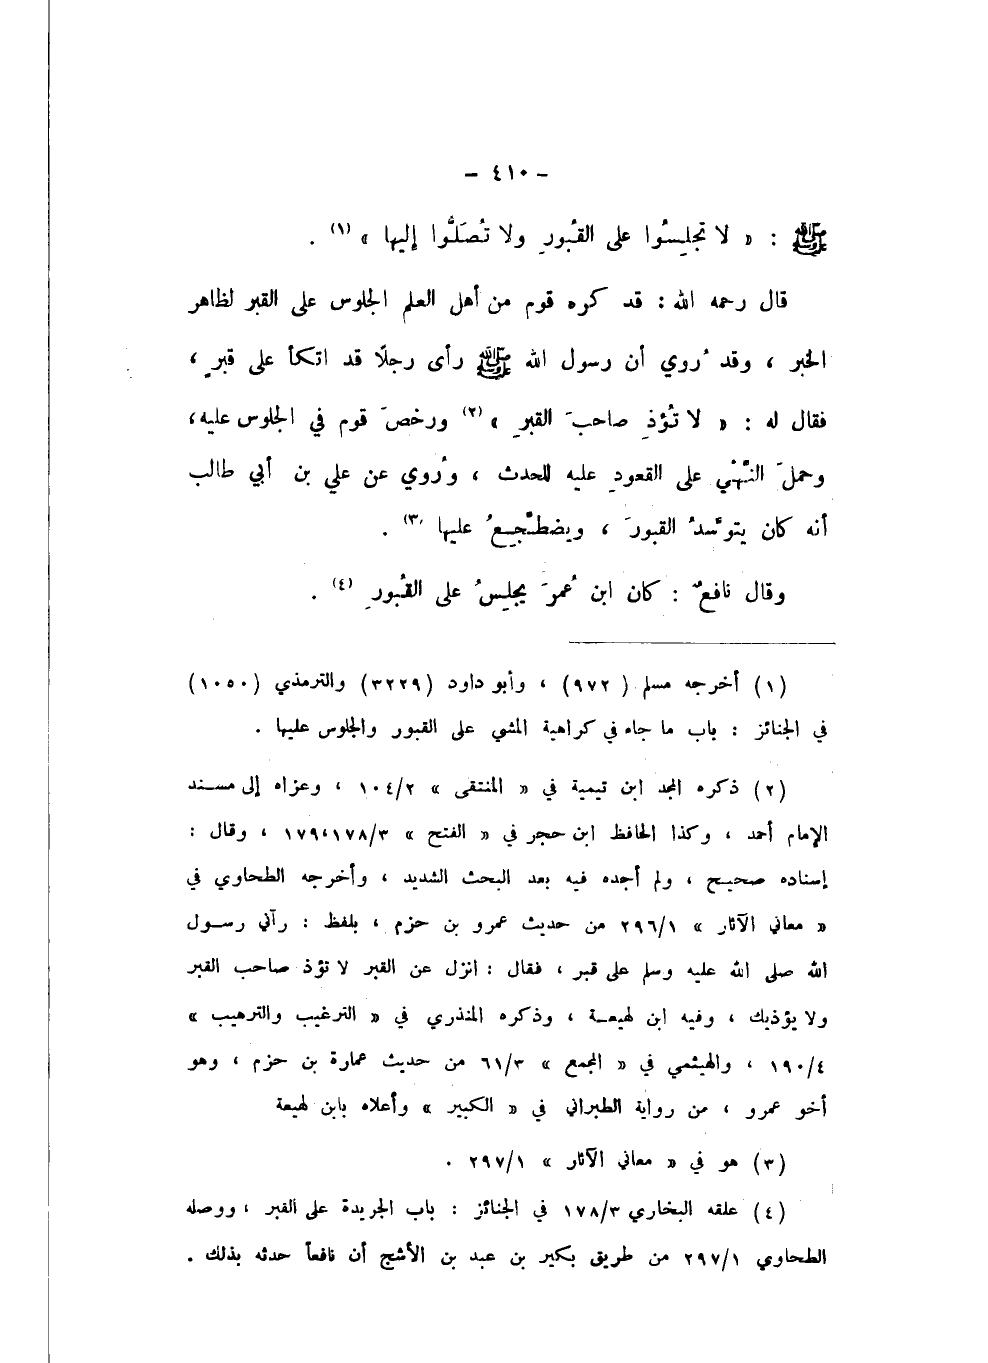 - ٤١٠ -
ﷺ : « لا تجلِسُوا على القُبورِ ولا تُصَلُّوا إليها » (١) .
قال رحمه الله : قد كره قوم من أهل العلم الجلوس على القبر لظاهر
الخبر ، وقد رُوي أن رسول الله ﷺ رأى رجلًا قد اتكأ على قبرٍ ،
فقال له : « لا تُؤذِ صاحبَ القبرِ » (٢) ورخصَ قوم في الجلوس عليه ،
وحملَ النَّهْي على القعودِ عليه للحدث ، ورُوي عن علي بن أبي طالب
أنه كان يتوسَّدُ القبورَ ، ويضطَجِعُ عليها (٣) .
وقال نافعٌ : كان ابن عُمرَ يجلِسُ على القُبورِ (٤) .
(١) أخرجه مسلم ( ٩٧٢) ، وأبو داود (٣٢٢٩) والترمذي (١٠٥٠)
في الجنائز : باب ما جاء في كراهية المشي على القبور والجلوس عليها .
(٢) ذكره المجد ابن تيمية في « المنتقى » ١٠٤/٢ ، وعزاه إلى مسند
الإمام أحمد ، وكذا الحافظ ابن حجر في « الفتح » ١٧٨/٣،١٧٩ ، وقال :
إسناده صحيح ، ولم أجده فيه بعد البحث الشديد ، وأخرجه الطحاوي في
« معاني الآثار » ٢٩٦/١ من حديث عمرو بن حزم ، بلفظ : رآني رسول
الله صلى الله عليه وسلم على قبر ، فقال : انزل عن القبر لا تؤذ صاحب القبر
ولا يؤذيك ، وفيه ابن لهيعة ، وذكره المنذري في « الترغيب والترهيب »
١٩٠/٤ ، والهيثمي في « المجمع » ٦١/٣ من حديث عمارة بن حزم ، وهو
أخو عمرو ، من رواية الطبراني في « الكبير » وأعلاه بابن لهيعة
(٣) هو في « معاني الآثار » ٢٩٧/١ .
(٤) علقه البخاري ١٧٨/٣ في الجنائز : باب الجريدة على القبر ، ووصله
الطحاوي ٢٩٧/١ من طريق بكير بن عبد بن الأشج أن نافعاً حدثه بذلك .